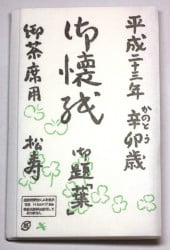 平成二十三年
辛卯歳
かのとう
御懐紙
御題「葉」
御茶席用
松寿